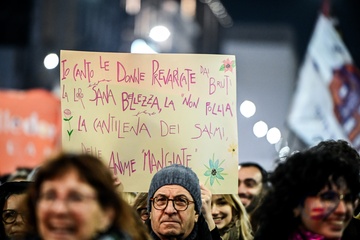 Io CANTO LE DONNE PREVARICATE DAI BRUTI
LA LORO SANA BELLEZZA, LA "NON FOLLIA
LA CANTILENA DEI SALMI,
DELLE ANIME "MANGIATE"